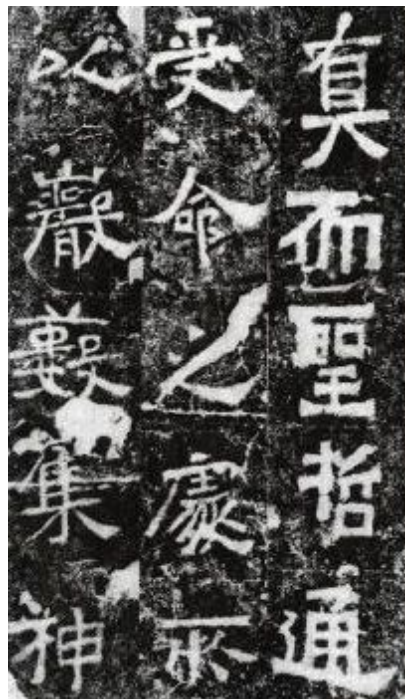 真而聖哲通
受命之處所
以巖藪集神